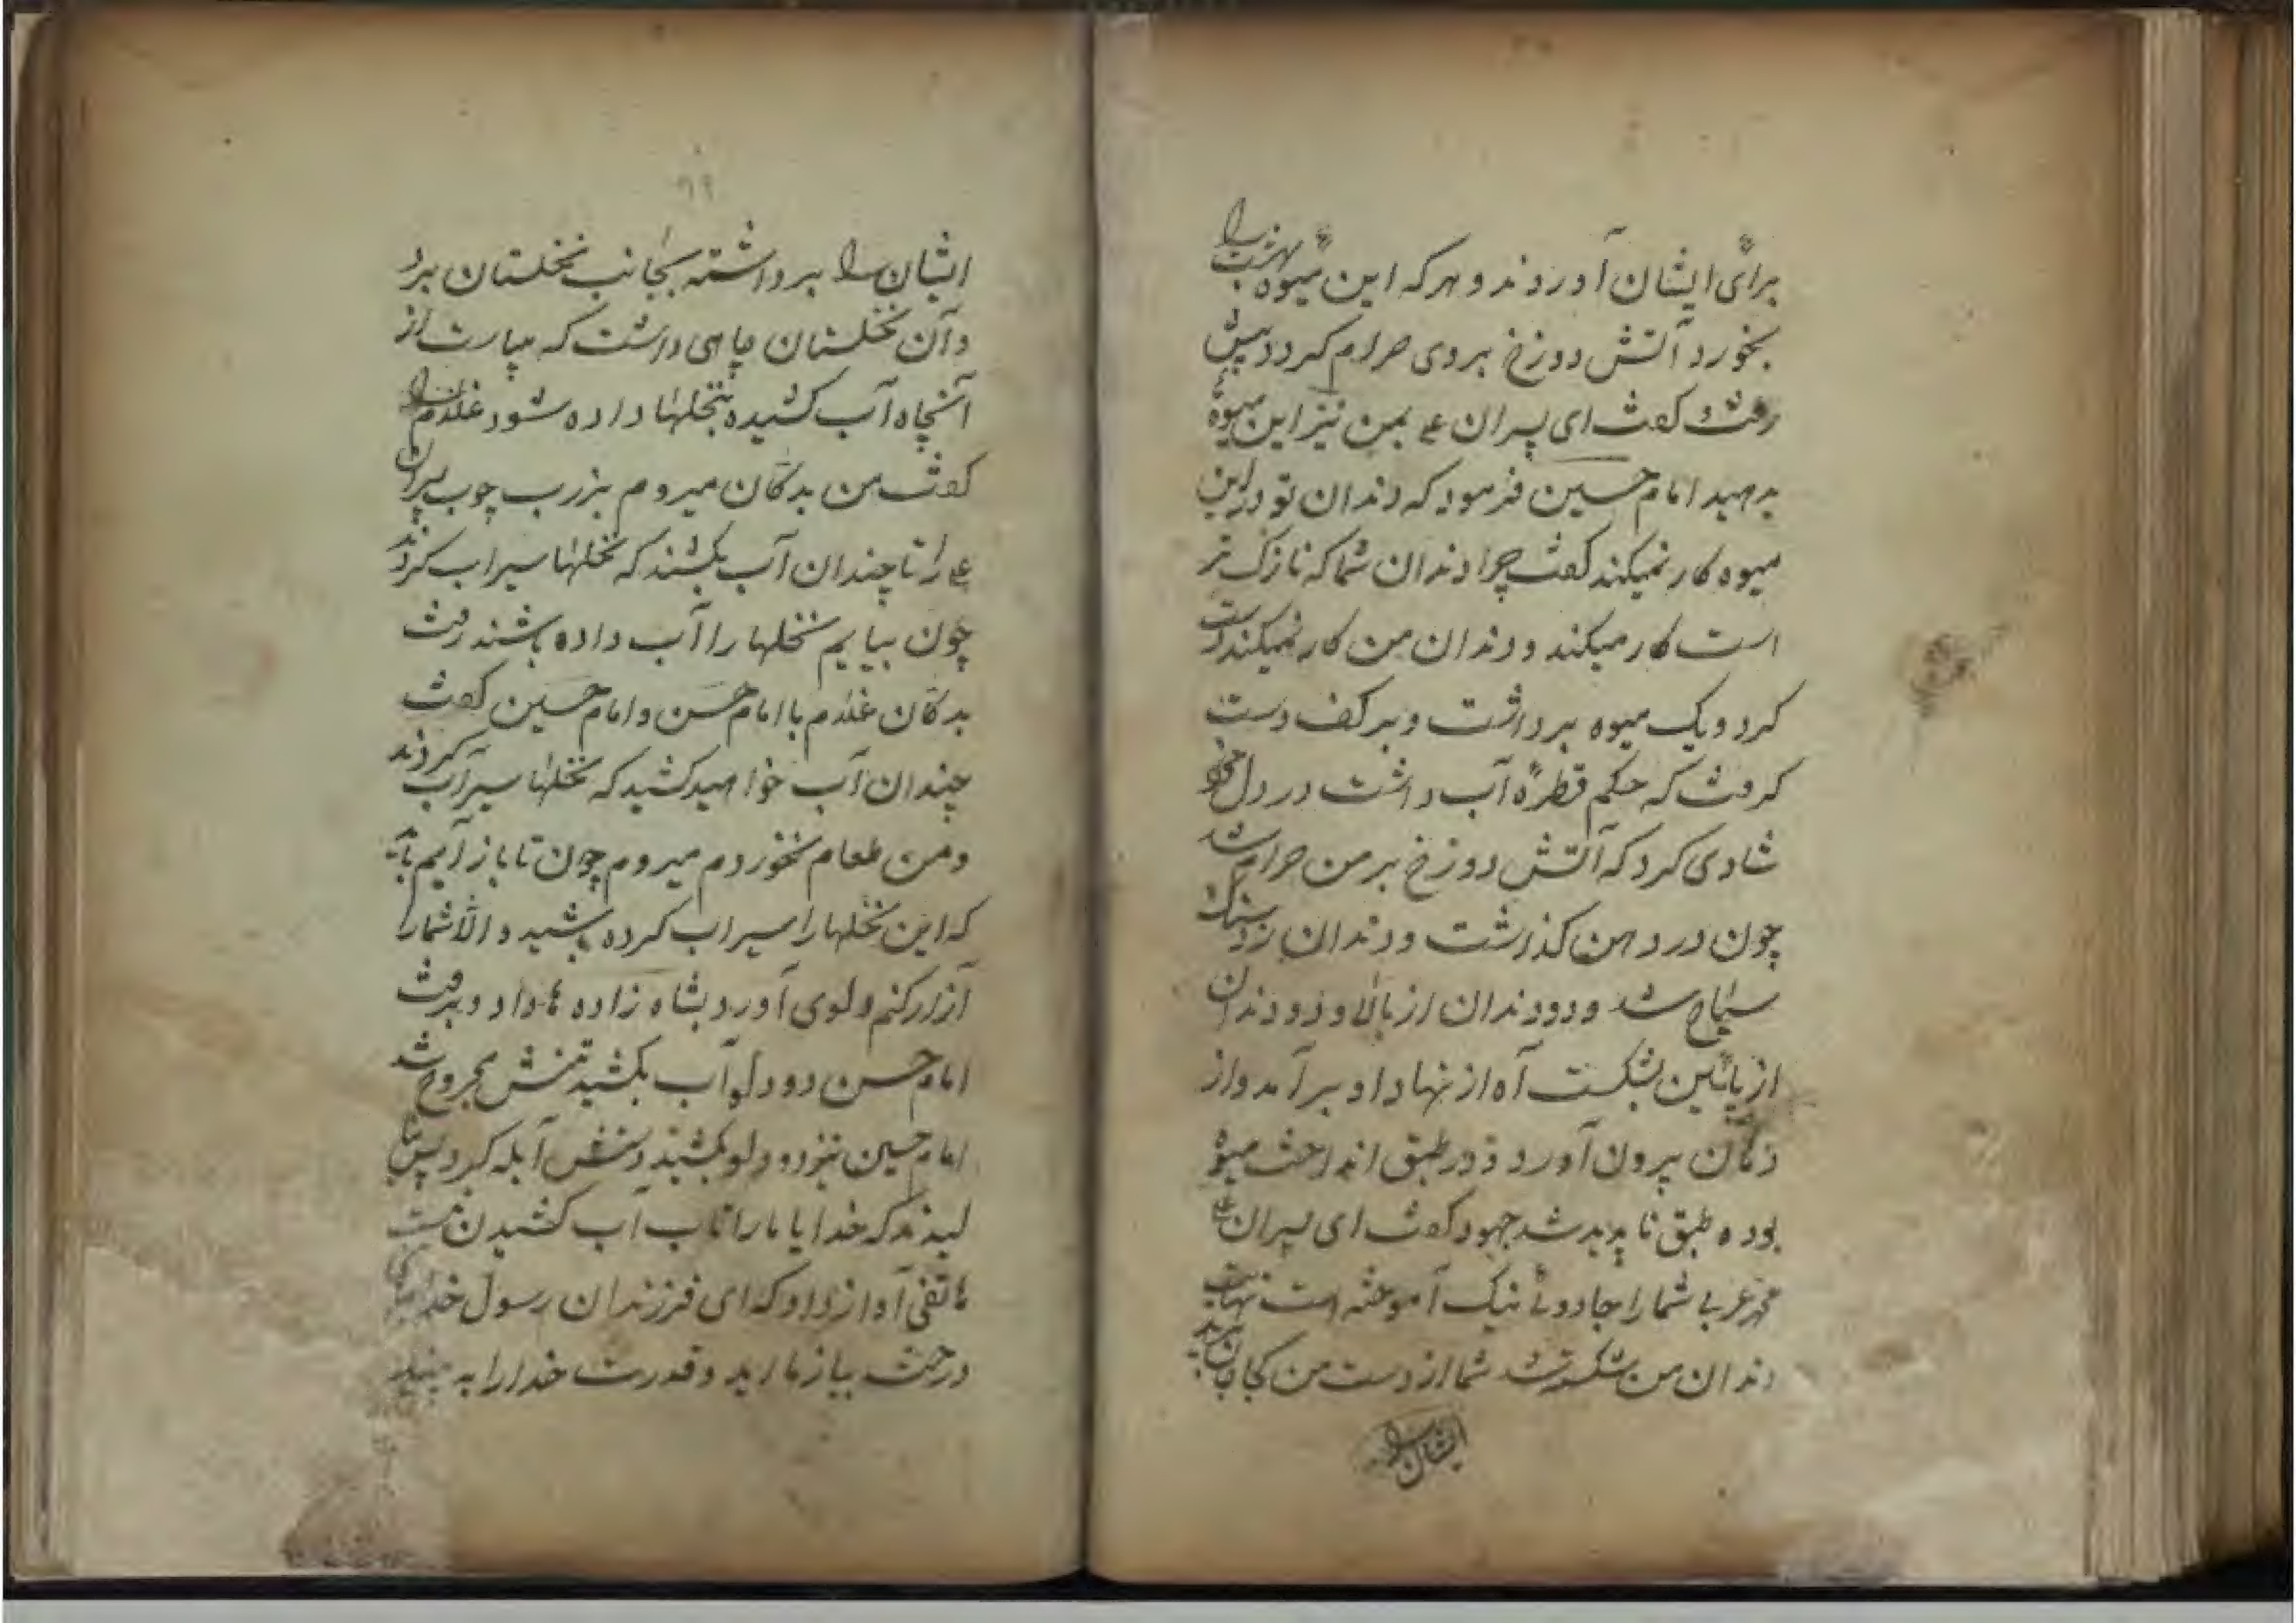 برائی ایشان آوردند و هر که این میوه بهشت را
بخورد آتش دوزخ بروی حرام کردد پیش
رفت و کفت ای پسران علی بمن نیز این میوهٔ
بدهید امام حسین فرمود که دندان تو در این
میوه کار نمیکند کفت چرا دندان شما که نازک تر
است کار میکند و دندان من کار نمیکند دست
کرد و یک میوه برداشت و بر کف دست
کرفت که حکم قطرهٔ آب داشت در دل خود
شادی کرد که آتش دوزخ بر من حرام شد
چون در دهن کذاشت و دندان زد سنک
سیاه شد و دو دندان از بالا و دو دندان
از پائین بشکست آه از نهاد او برآمد و از
دهان بیرون آورد و در طبق انداخت میوه
بوده طبق ناپدید شد جهود کفت ای پسران علی
محمد عربی شما را جادوئی نیک آموخته است نهایت
دندان من شکسته شد شما از دست من کجا جان برید
ایشان را
۶۹
ایشان را برداشته بجانب نخلستان برد
و آن نخلستان چاهی داشت که میبایست از
آنچاه آب کشیده بنخلها داده شود غلام را
کفت من بدکان میروم بضرب چوب پسران
علی را تا چندان آب بکشند که نخلها سیراب کردند
چون بیایم نخلها را آب داده باشند رفت
بدکان غلام با امام حسن و امام حسین کفت
چندان آب خواهید کشید که نخلها سیراب کردند
و من طعام نخوردم میروم چون تا باز آیم باید
که این نخلها را سیراب کرده باشید و الّا شما را
آزار کنم دلوی آورد بشاه زاده ها داد و برفت
امام حسن دو دلو آب بکشید تنش مجروح شد
امام حسین نیز دو دلو بکشید دستش آبله کرد پس
که خدایا ما را تاب آب کشیدن نیست
هاتفی آواز داد که ای فرزندان رسول خدا
درخت بیازمائید و قدرت خدا را به بینید